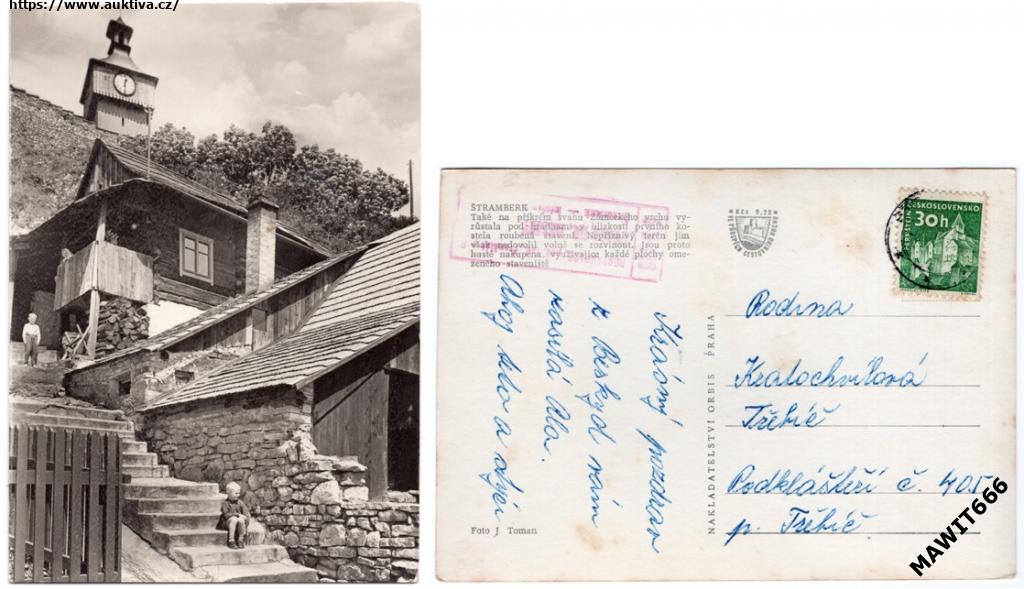 https://www.auktiva.cz/
ŠTRAMBERK
Také na příkrém svahu Zámeckého vrchu vy-
růstala pod hradbami v blízkosti prvního ko-
stela roubená stavení. Nepříznivý terén jim
však nedovolil volně se rozvinout. Jsou proto
hustě nakupena, využívajíce každé plochy ome-
zeného staveniště
Kčs 0,20
ČESKOSLOVENSKO
30h
PERNŠTEJN
Krásný pozdrav
z Beskyd vám
zasílá Ala.
Ahoj teto a
Rodina
Kratochvílová
Třebíč
Podklášteří č. 405
p. Třebíč
NAKLADATELSTVÍ ORBIS PRAHA
Foto J. Toman
MAWIT666